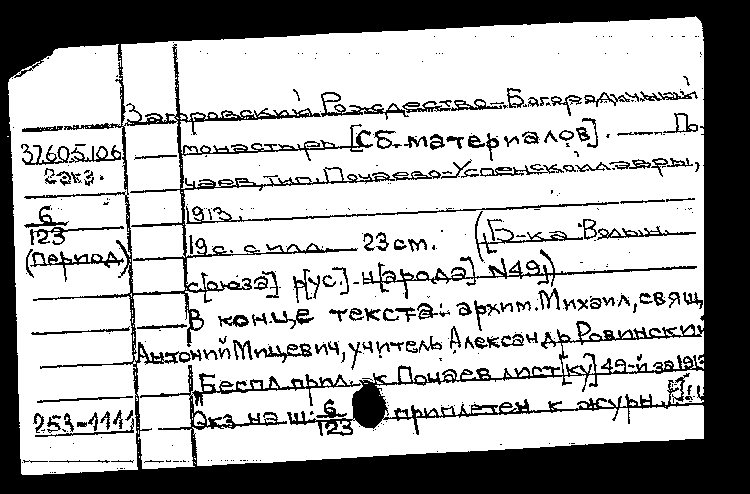 Загоровский Рождество-Богородичный
37.605.106 монастырь [Сб. материалов]. — По-
2 экз. чаев, тип. Почаево-Успенской лавры,
6/123 1913.
(период.) 19 с. с илл. 23 см. (Б-ка Волын.
с[оюза] р[ус].н[арода] №49)
В конце текста: архим. Михаил, свящ.
Антоний Мицевич, учитель Александр Ровинский
Беспл. прил. к Почаев. лист[ку] 49-й за 1913
253-1111 Экз. на ш: 6/123 приплетен к журн.